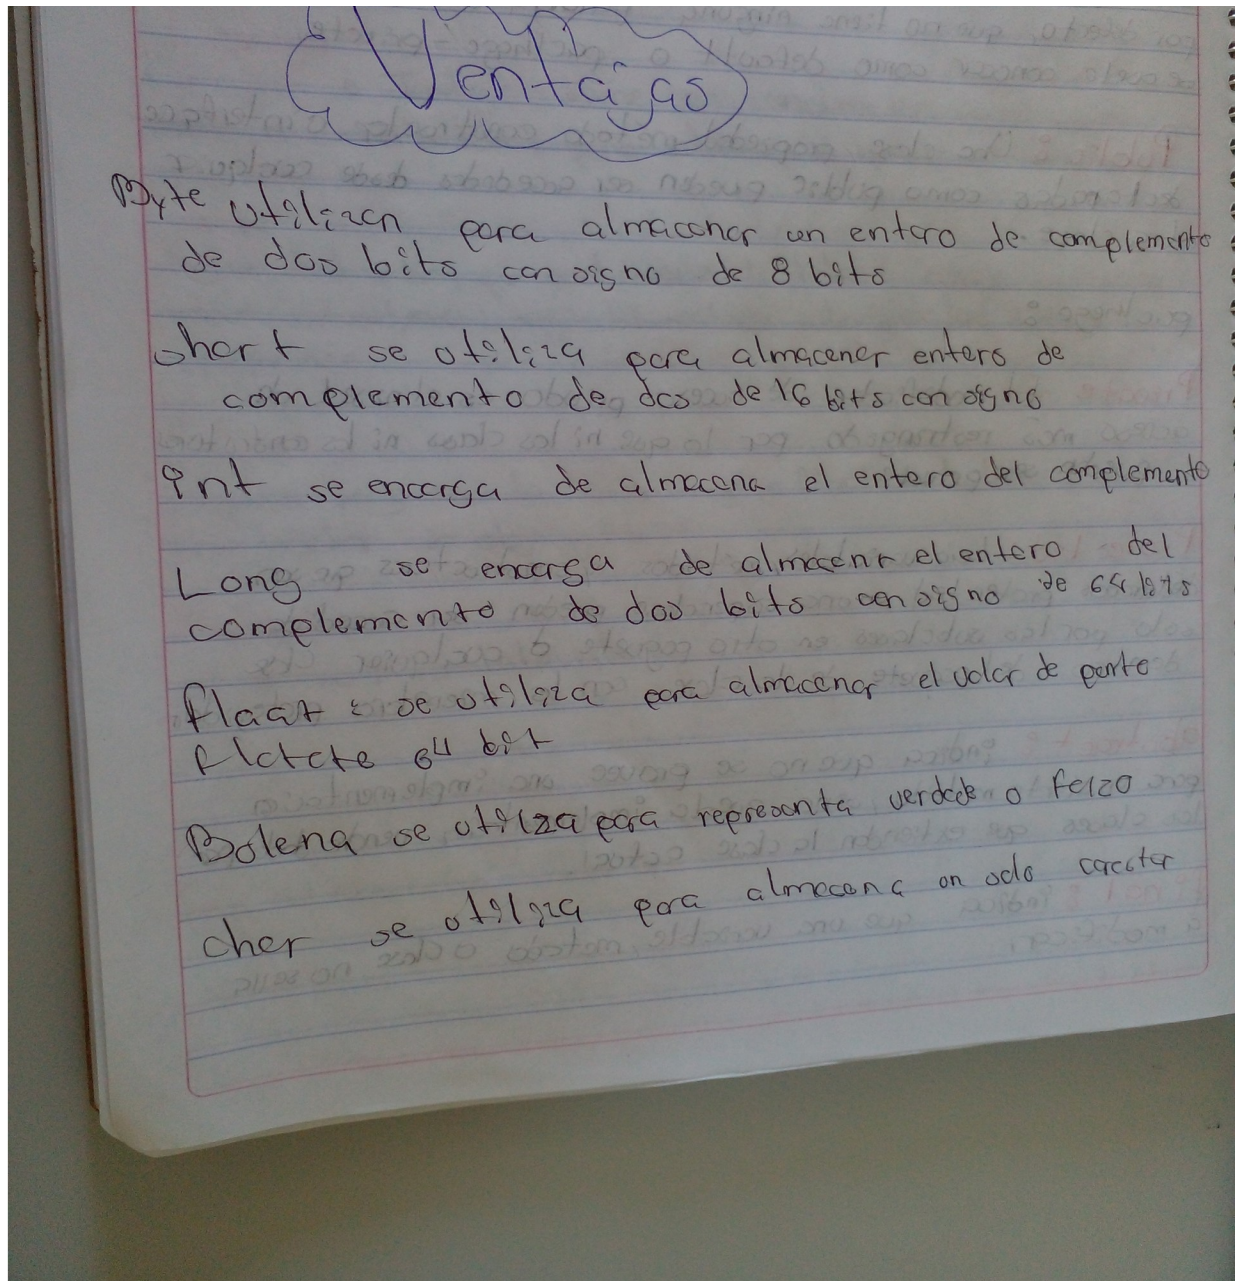 Ventajas
Byte utilizan para almacenar un entero de complemento
de dos bits con signo de 8 bits
short se utiliza para almacener entero de
complemento de dos de 16 bits con signo
int se encarga de almacena el entero del complemento
Long se encarga de almacenr el entero del
complemento de dos bits con signo de 64 bits
float : se utiliza para almacenar el valor de punto
flotate 64 bit
Bolena se utilza para represonta verdade o felzo
cher se utiliza para almacena un solo caracter